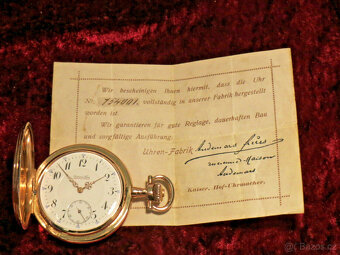 Wir bescheinigen Ihnen hiermit, dass die Uhr
No. 754001. vollständig in unserer Fabrik hergestellt
worden ist.
Wir garantieren für gute Reglage, dauerhaften Bau
und sorgfältige Ausführung.
Uhren-Fabrik Audemars frères
Audemars
Kaiser. Hof-Uhrmacher.
Bazos.cz